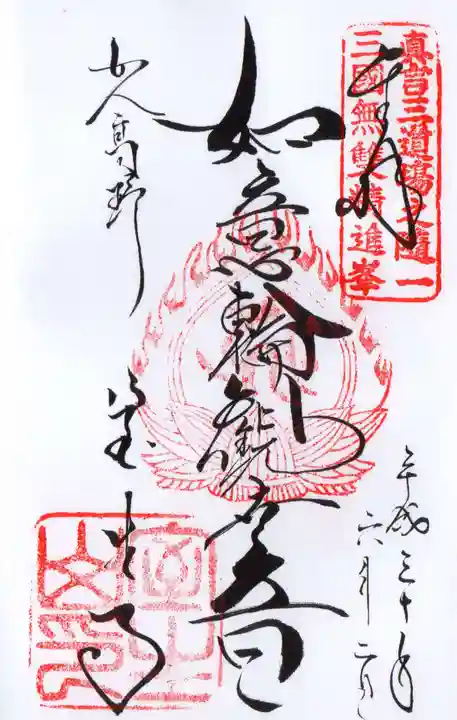 真言三道場之随一
三國無雙精進峯
奉拝
平成三十年
六月二日
如意輪観音
女人高野
室生寺